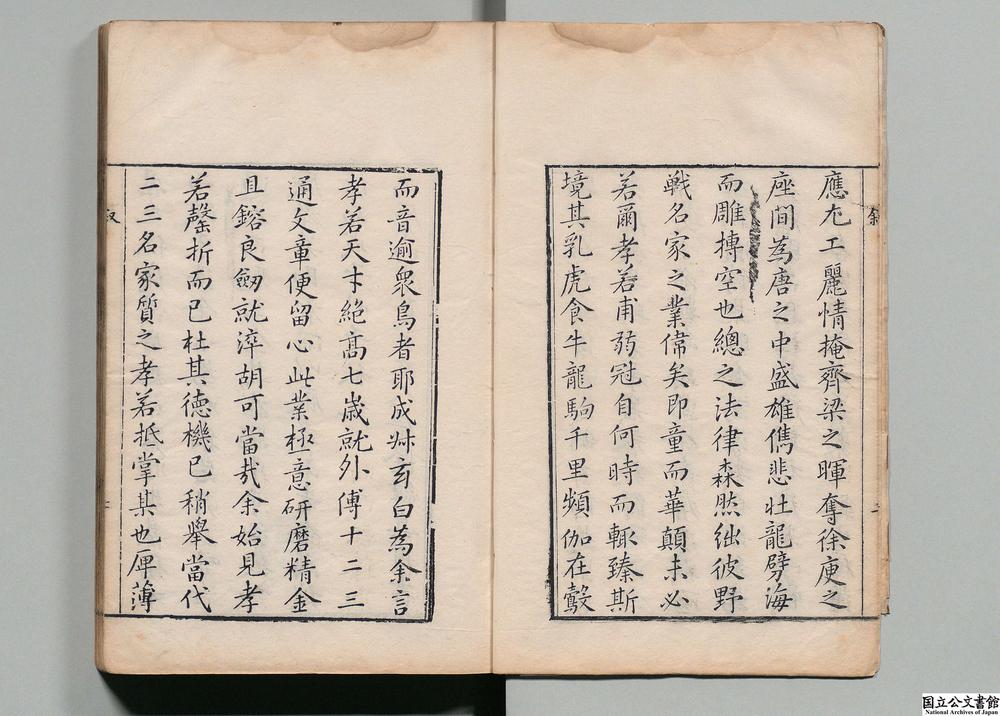 應尤工麗情掩齊梁之暉奪徐庾之
座間為唐之中盛雄儁悲壯龍劈海
而雕摶空也總之法律森然絀彼野
戰名家之業偉矣即童而華顛未必
若爾孝若甫弱冠自何時而輒臻斯
境其乳虎食牛龍駒千里頻伽在鷇
而音逾衆鳥者耶成艸玄白為余言
孝若天才絶高七歲就外傅十二三
通文章便留心此業極意研磨精金
且鎔良劒就淬胡可當哉余始見孝
若罄折而已杜其德機已稍舉當代
二三名家質之孝若抵掌其也厓薄
国立公文書館
National Archives of Japan